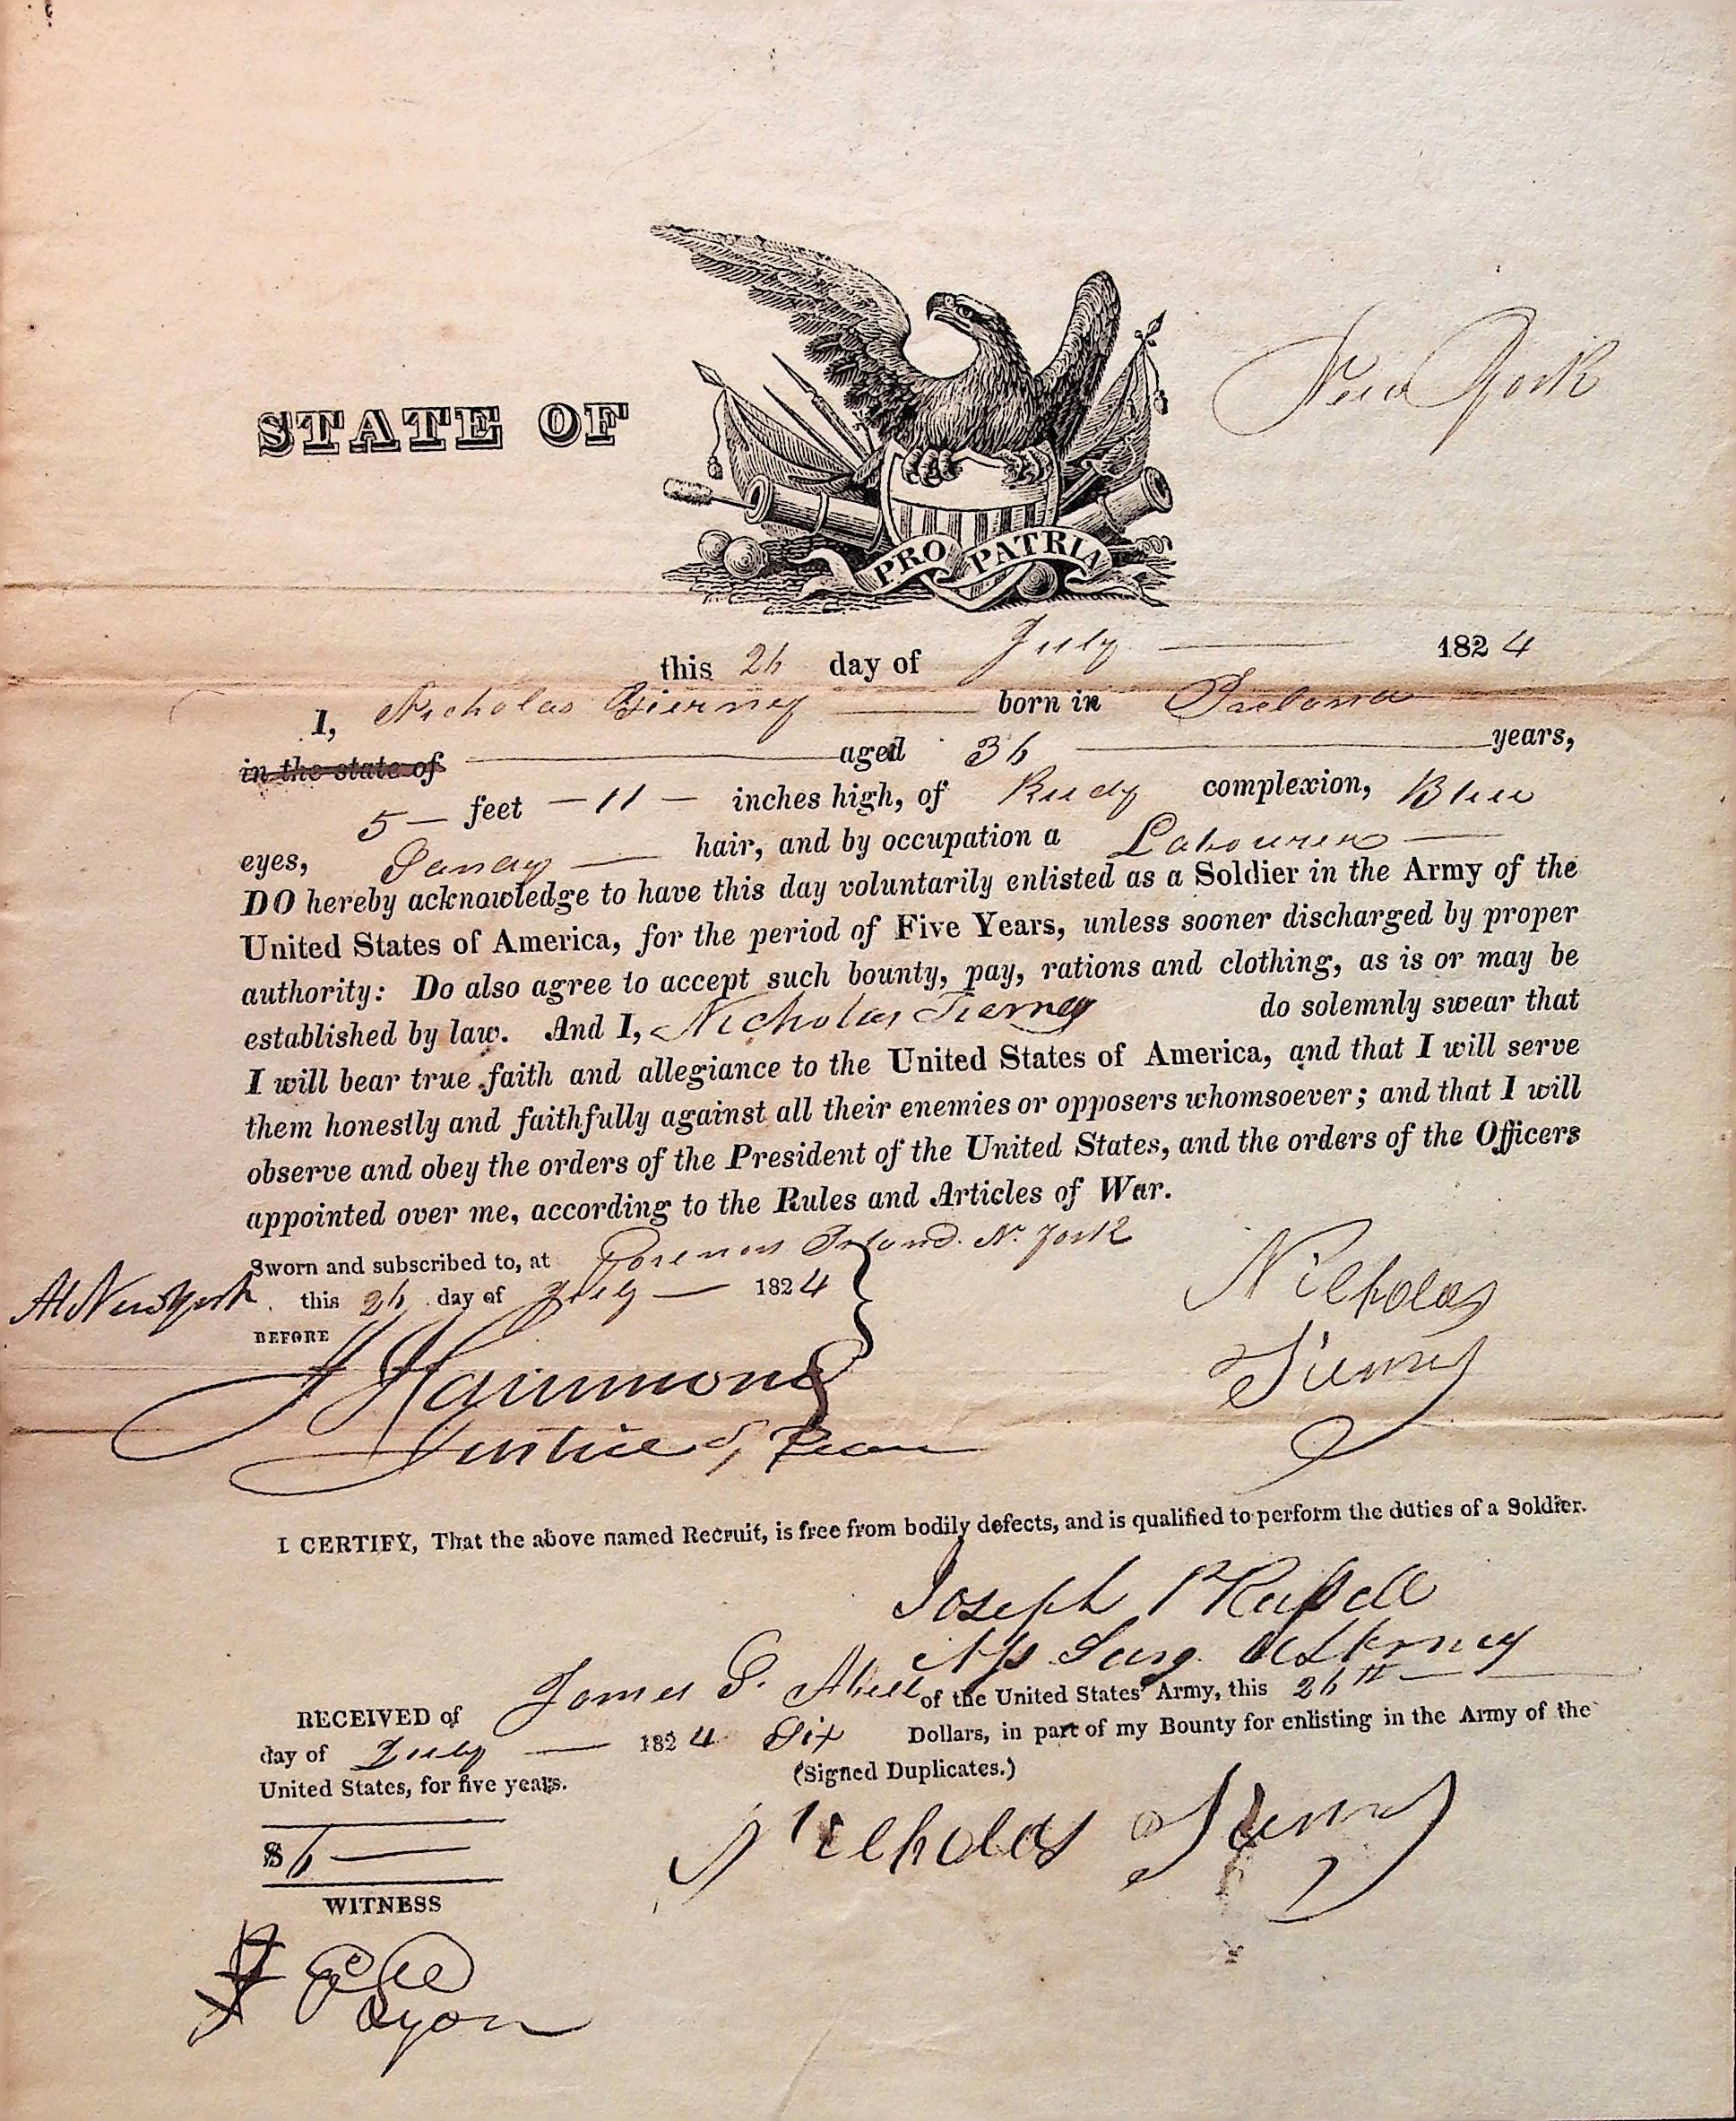 STATE OF
New York
PRO PATRIA
this 26 day of July 1824
I, Nicholas Tierney born in Ireland
in the state of aged 36 years,
5 feet 11 inches high, of Rudy complexion, Blue
eyes, Sandy hair, and by occupation a Labourer
DO hereby acknowledge to have this day voluntarily enlisted as a Soldier in the Army of the
United States of America, for the period of Five Years, unless sooner discharged by proper
authority: Do also agree to accept such bounty, pay, rations and clothing, as is or may be
established by law. And I, Nicholas Tierney do solemnly swear that
I will bear true faith and allegiance to the United States of America, and that I will serve
them honestly and faithfully against all their enemies or opposers whomsoever; and that I will
observe and obey the orders of the President of the United States, and the orders of the Officers
appointed over me, according to the Rules and Articles of War.
Sworn and subscribed to, at Governors Island N. York
At New York this 26 day of July 1824
BEFORE
Hammond
Justice of Peace
Nicholas
Tierney
I CERTIFY, That the above named Recruit, is free from bodily defects, and is qualified to perform the duties of a Soldier.
Joseph P Russell
Surg. Attorney
RECEIVED of James G. Abell of the United States' Army, this 26th
day of July 1824 Six Dollars, in part of my Bounty for enlisting in the Army of the
United States, for five years.
(Signed Duplicates.)
$6
Nicholas Tierney
WITNESS
Lyon